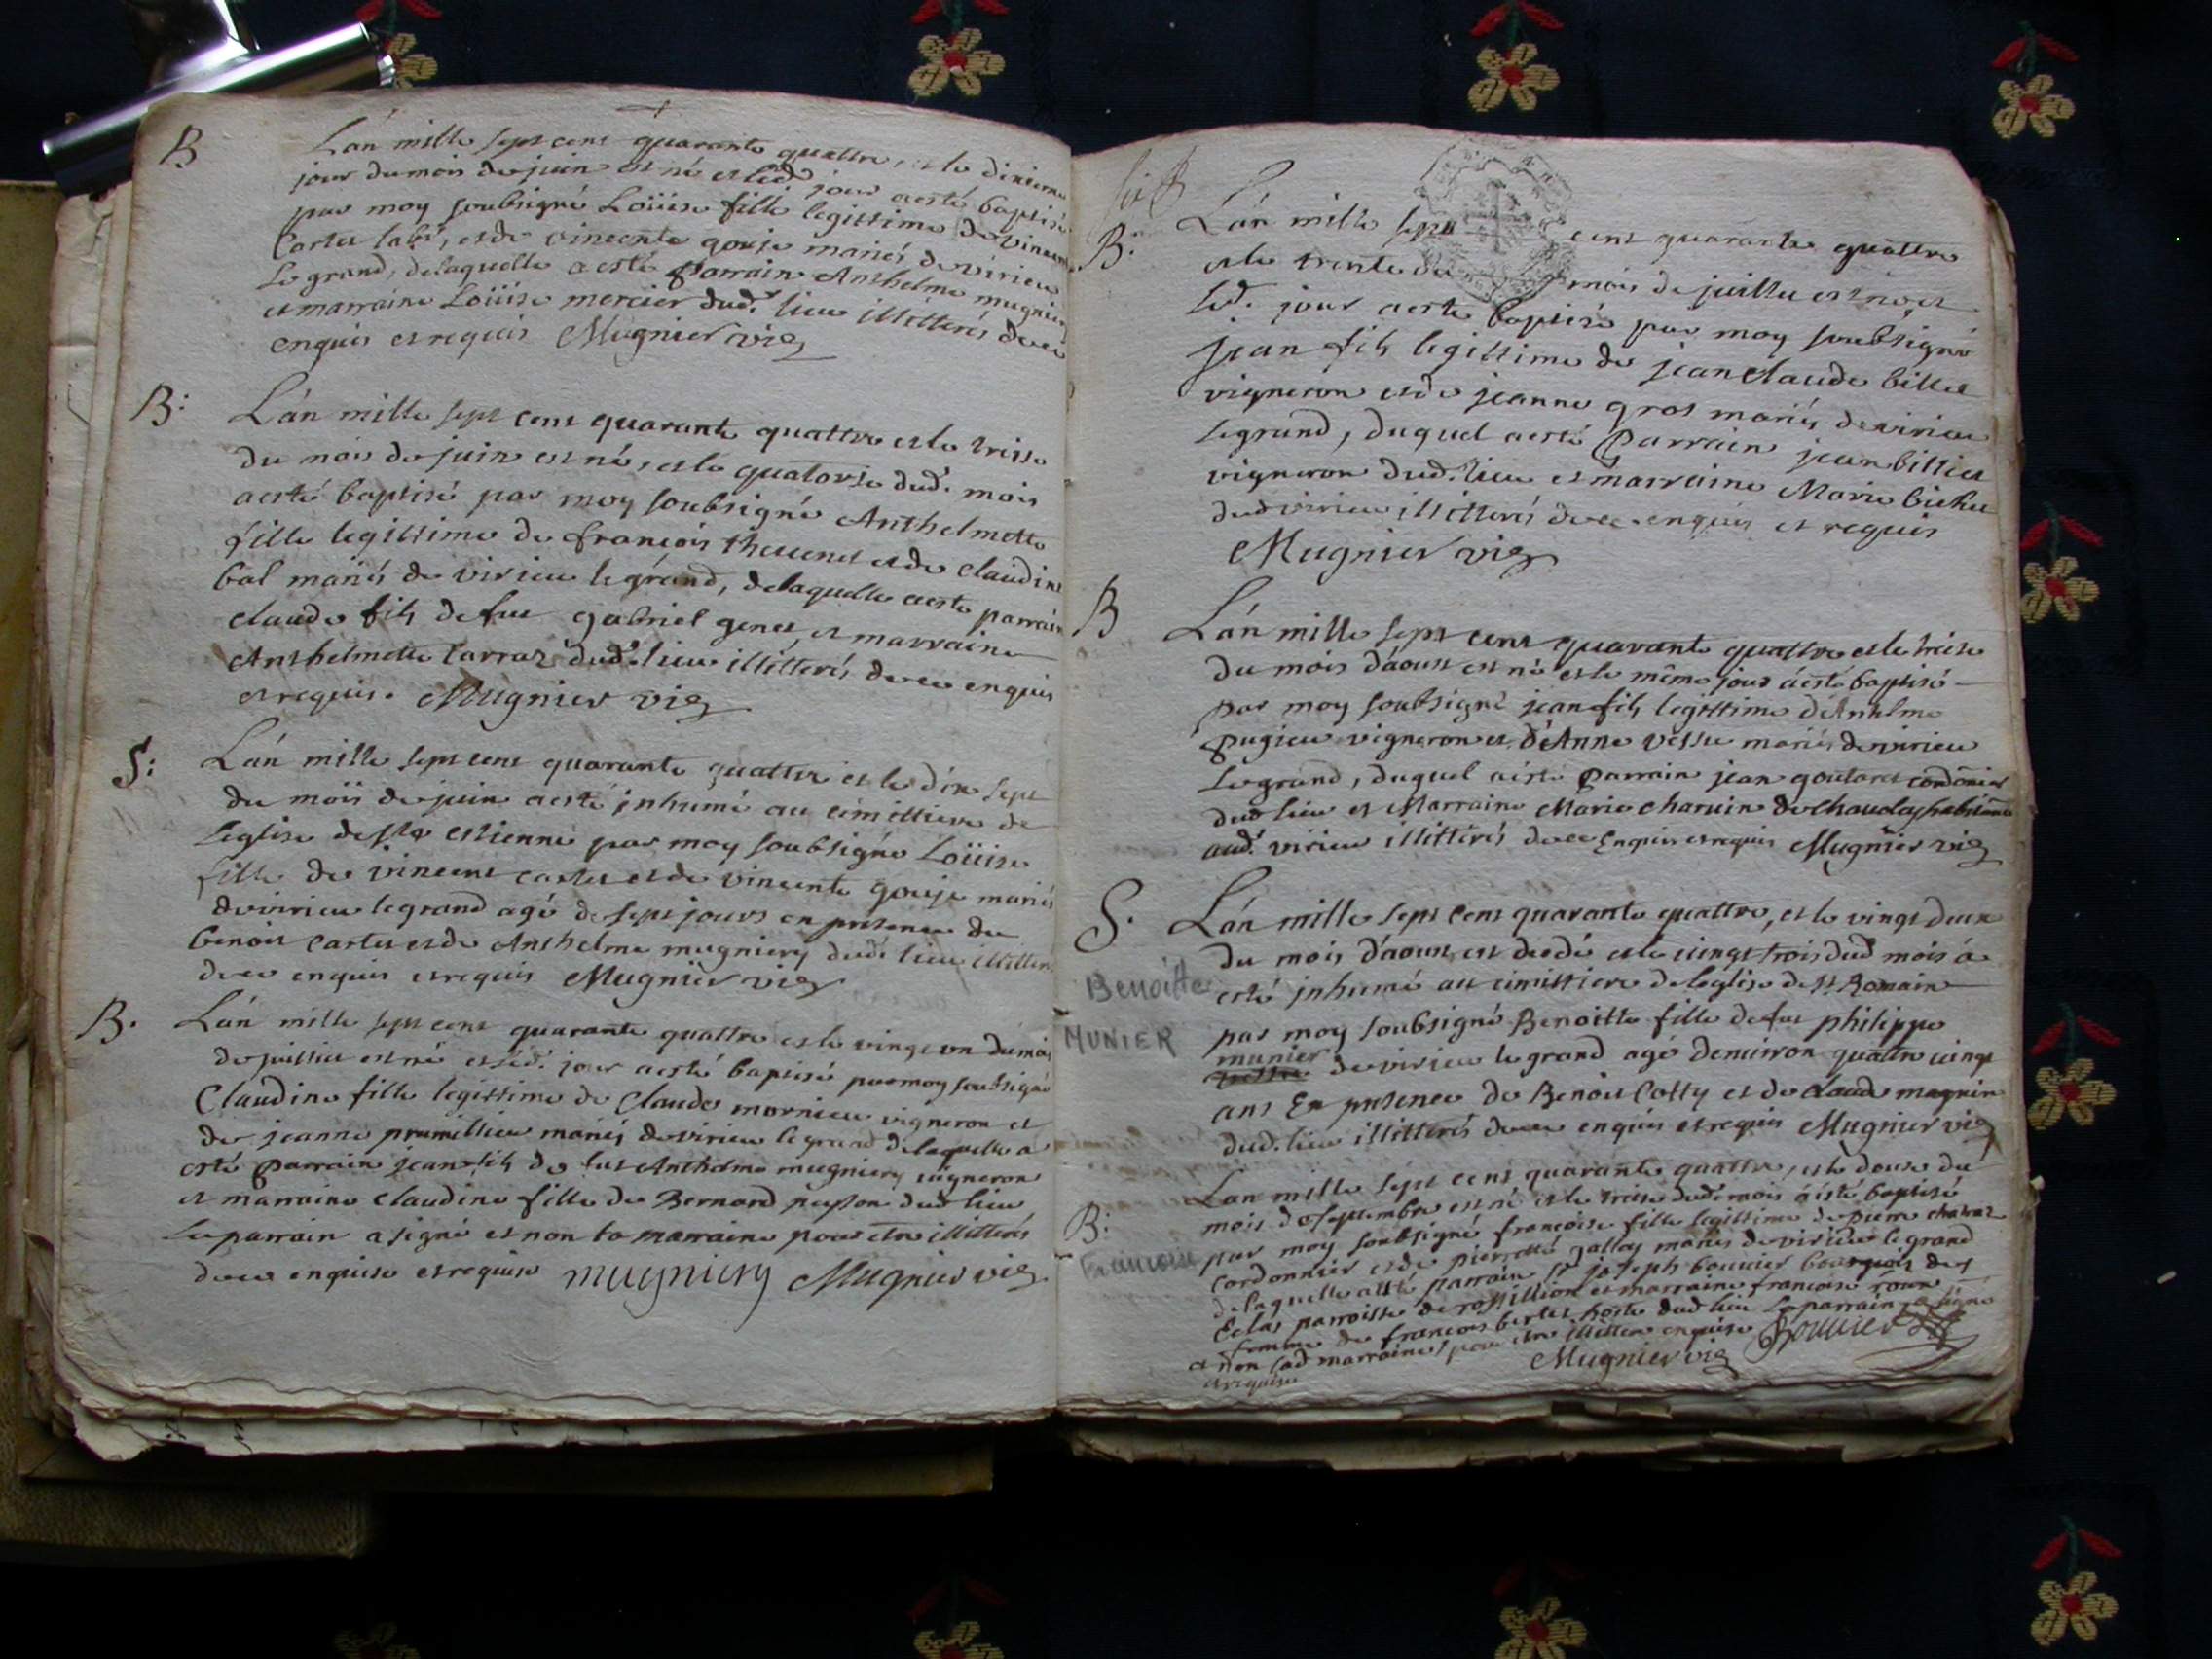 B
L'án mille sept cent quarante quattre, et le dixieme
jour du mois de juin est né et led. jour a esté baptisé
par moy soubsigné Loüise fille legittime de vincent
Cartet, et de vincente gouje mariés de virieu
le grand, de laquelle a esté Parrain Anthelme mugniery
et marraine Loüise mercier dud. lieu illitterés de ce
enquis et requis Mugnier vic
B:
L'án mille sept cent quarante quattre et le treise
du mois de juin est né, et le quatorse dud. mois
a esté baptisé par moy soubsigné Anthelmette
fille legittime de françois thevenet et de claudine
bal mariés de virieu le grand, de laquelle a esté parrain
claude fils de feu gabriel genet, et marraine
Anthelmette Carraz dud. lieu illitterés de ce enquis
et requis. Mugnier vic
S:
L'án mille sept cent quarante quattre et le dix sept
du mois de juin a esté inhumé au cimittiere de
l'eglise de st estienne par moy soubsigné Loüise
fille de vincent cartet et de vincente gouje mariés
de virieu le grand agé de sept jours en presence de
benoit Cartet et de Anthelme mugniery dud. lieu illitterés
de ce enquis et requis Mugnier vic
B.
L'án mille sept cent quarante quattre et le vingt un du mois
de juillet est né et led. jour a esté baptisé par moy soubsigné
Claudine fille legittime de Claude mornieu vigneron et
de jeanne prumillieu mariés de virieu le grand de laquelle a
esté parrain jean fils de feu Anthelme mugniery vigneron
et marraine claudine fille de Bernard peysson dud lieu,
le parrain a signé et non la marraine pour etre illitterés
de ce enquise et requise mugniery Mugnier vic
B:
L'án mille sept cent quarante quattre
et le trente du mois de juillet est né, et
led. jour a esté baptisé par moy soubsigné
jean fils legittime de jean claude billiet
vigneron et de jeanne gros mariés de virieu
le grand, duquel a esté Parrain jean billiet
vigneron dud. lieu et marraine Marie
dud virieu illitterés de ce enquis et requis
Mugnier vic
B
L'án mille sept cent quarante quattre et le treise
du mois d'áoust est né et le même jour á esté baptisé
par moy soubsigné jean fils legittime d'Anthelme
pugieu vigneron et d'Anne mariés de virieu
le grand, duquel a esté Parrain jean goutaret cordonnier
dud lieu et Marraine Marie charvin de
aud. virieu illitterés de ce Enquis et requis Mugnier vic
S.
L'án mille sept cent quarante quattre, et le vingt deux
du mois d'áoust, est dcedé et le vingt trois dud mois á
esté inhumé au cimittiere de l'eglise de st Romain
Benoitte
par moy soubsigné Benoitte fille de feu philippe
MUNIER
munier
de virieu le grand agé d'environ quattre vingt
ans En presence de Benoit Cotty et de Claude magnin
dud. lieu illitterés de ce enquis et requis Mugnier vic
B:
L'an mille sept cent quarante quattre, et le douse du
mois de septembre est né et le treise dud. mois á esté baptisé
par moy soubsigné françoise fille legittime de pierre charvaz
Francoise
cordonnier et de pierrette gallay mariés de virieu le grand
de laquelle a esté parrain sr joseph bouvier bourgeois des
Eclas parroisse de rossillion et marraine francoise roux
femme de francois bertet hoste dud lieu Le parrain a signé
et non lad marraine pour etre illitteré enquise Bouvier
et requise Mugnier vic